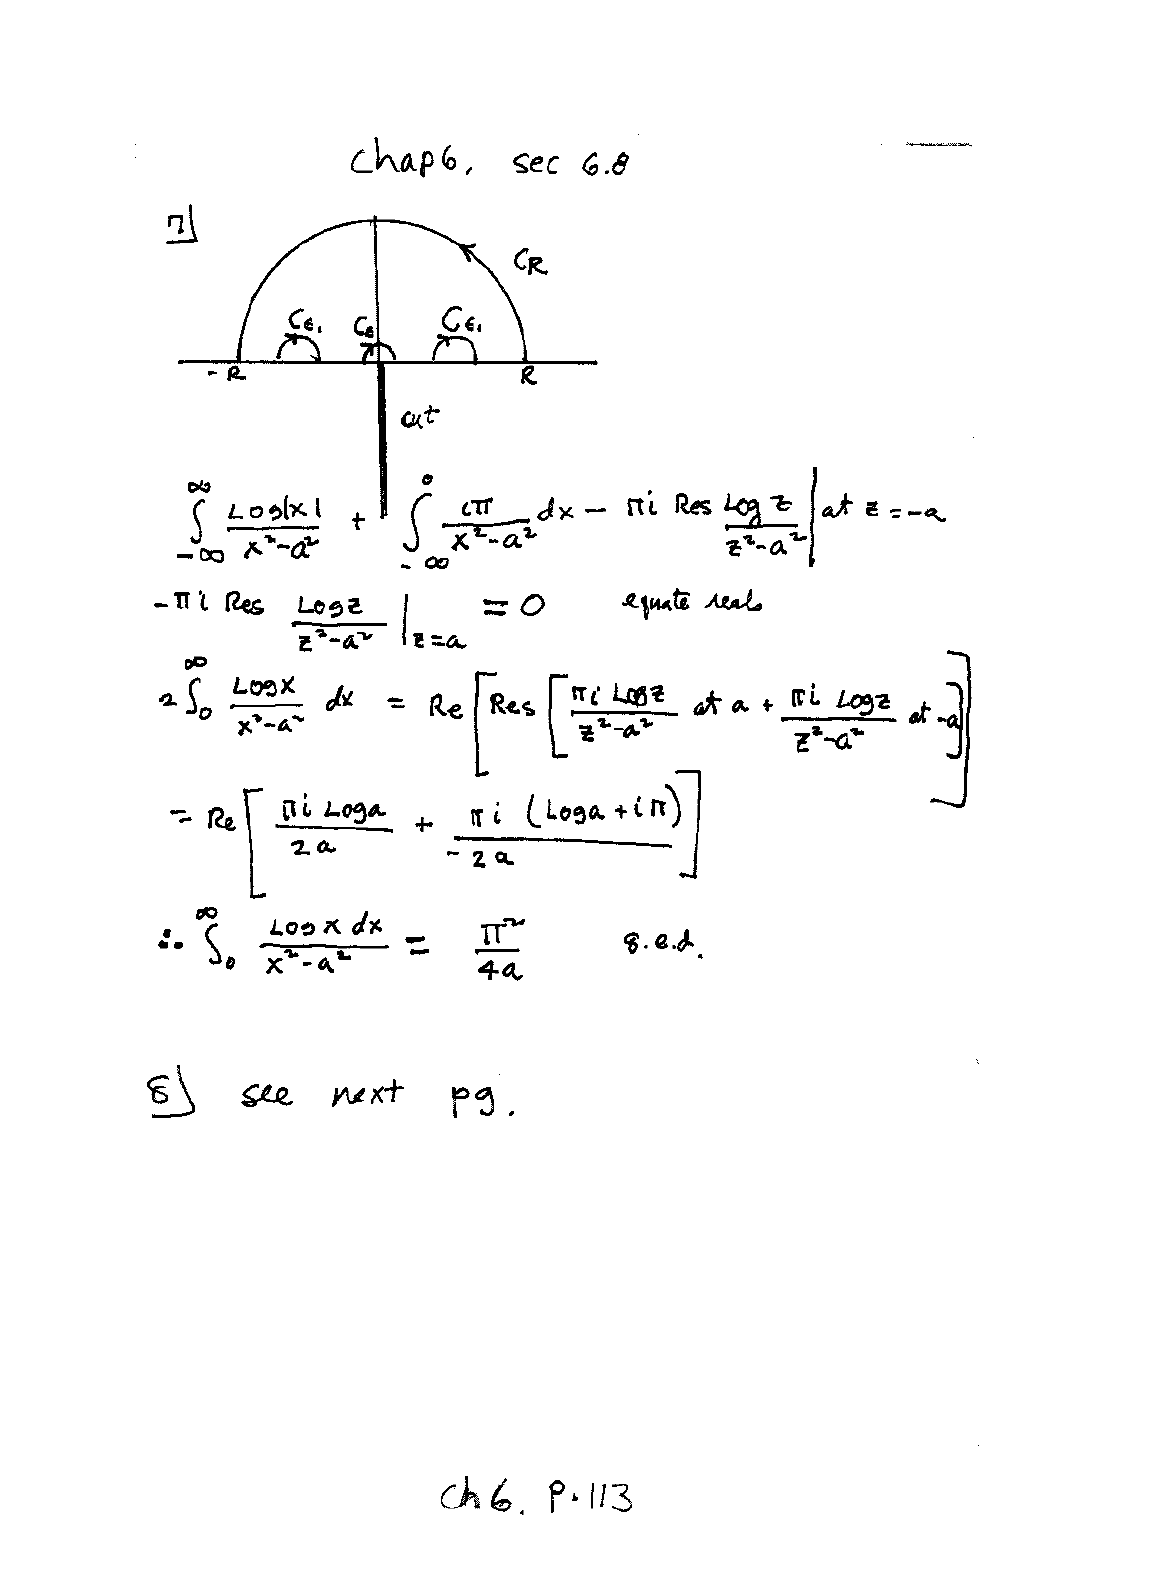 Chap 6, sec 6.8
7]
C_R
C_ε₁ C_ε C_ε₁
-R R
cut
∫_{-∞}^{∞} Log|x| / (x²-a²) + ∫_{-∞}^{0} iπ / (x²-a²) dx - πi Res Log z / (z²-a²) | at z = -a
-πi Res Log z / (z²-a²) |_{z=a} = 0 equate reals
2∫_0^∞ Log x / (x²-a²) dx = Re[Res[πi Log z / (z²-a²) at a + πi Log z / (z²-a²) at -a]]
= Re[πi Log a / 2a + πi (Log a + iπ) / -2a]
∴ ∫_0^∞ Log x dx / (x²-a²) = π² / 4a q.e.d.
8] see next pg.
Ch 6. P. 113